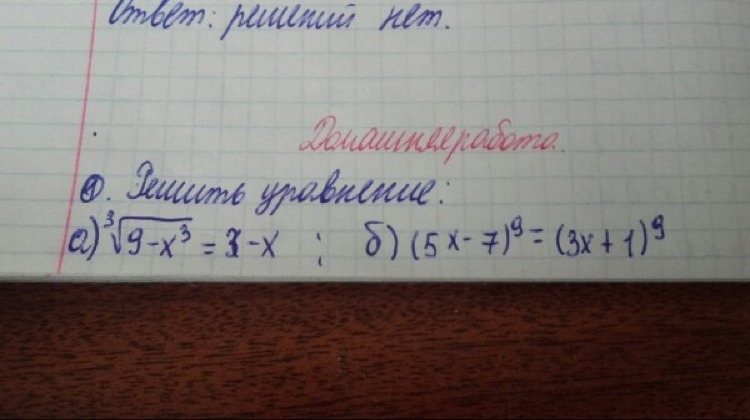 Ответ: решений нет.
Домашняя работа.
①. Решить уравнение:
а) ∛(9-x³) = 3-x ; б) (5x-7)⁹ = (3x+1)⁹